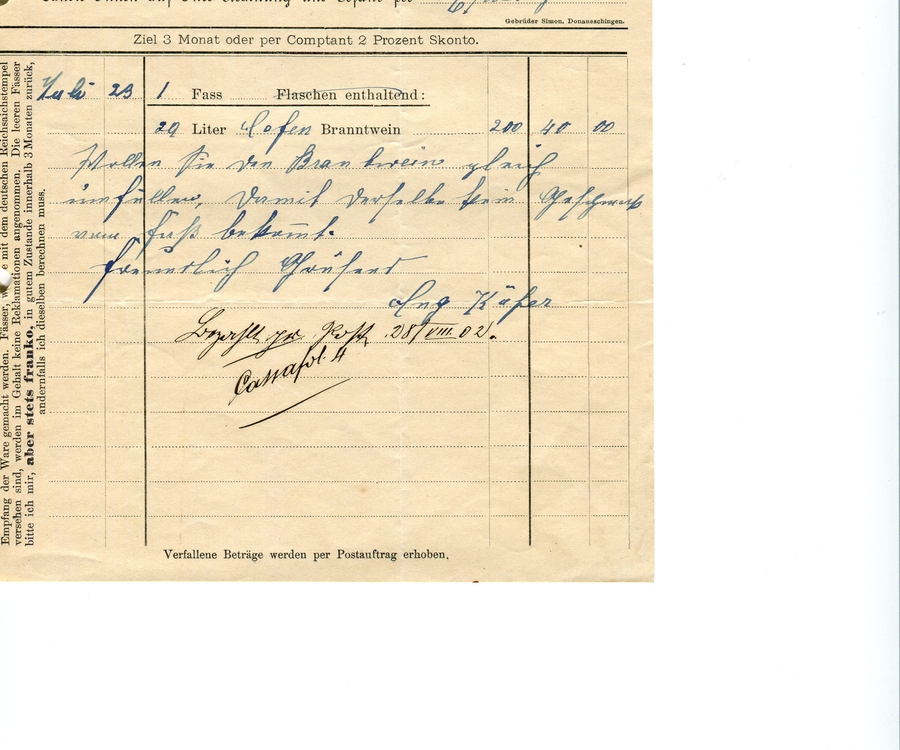 Gebrüder Simon, Donaueschingen.
Ziel 3 Monat oder per Comptant 2 Prozent Skonto.
Juli 23 1 Fass Flaschen enthaltend:
20 Liter Hefen Branntwein 200 40 00
Wollen Sie den Brantwein gleich
umfüllen, damit derselbe kein Geschmack
vom Faß bekommt.
freundlich Grüßend
Aug Käfer
Bezahlt pr Post 28/VIII 02.
Cassafol. 4
Verfallene Beträge werden per Postauftrag erhoben.
Empfang der Ware gemacht werden. Fässer, mit dem deutschen Reichsaichstempel
versehen sind, werden im Gehalt keine Reklamationen angenommen. Die leeren Fässer
bitte ich mir, aber stets franko, in gutem Zustande innerhalb 3 Monaten zurück,
andernfalls ich dieselben berechnen muss.